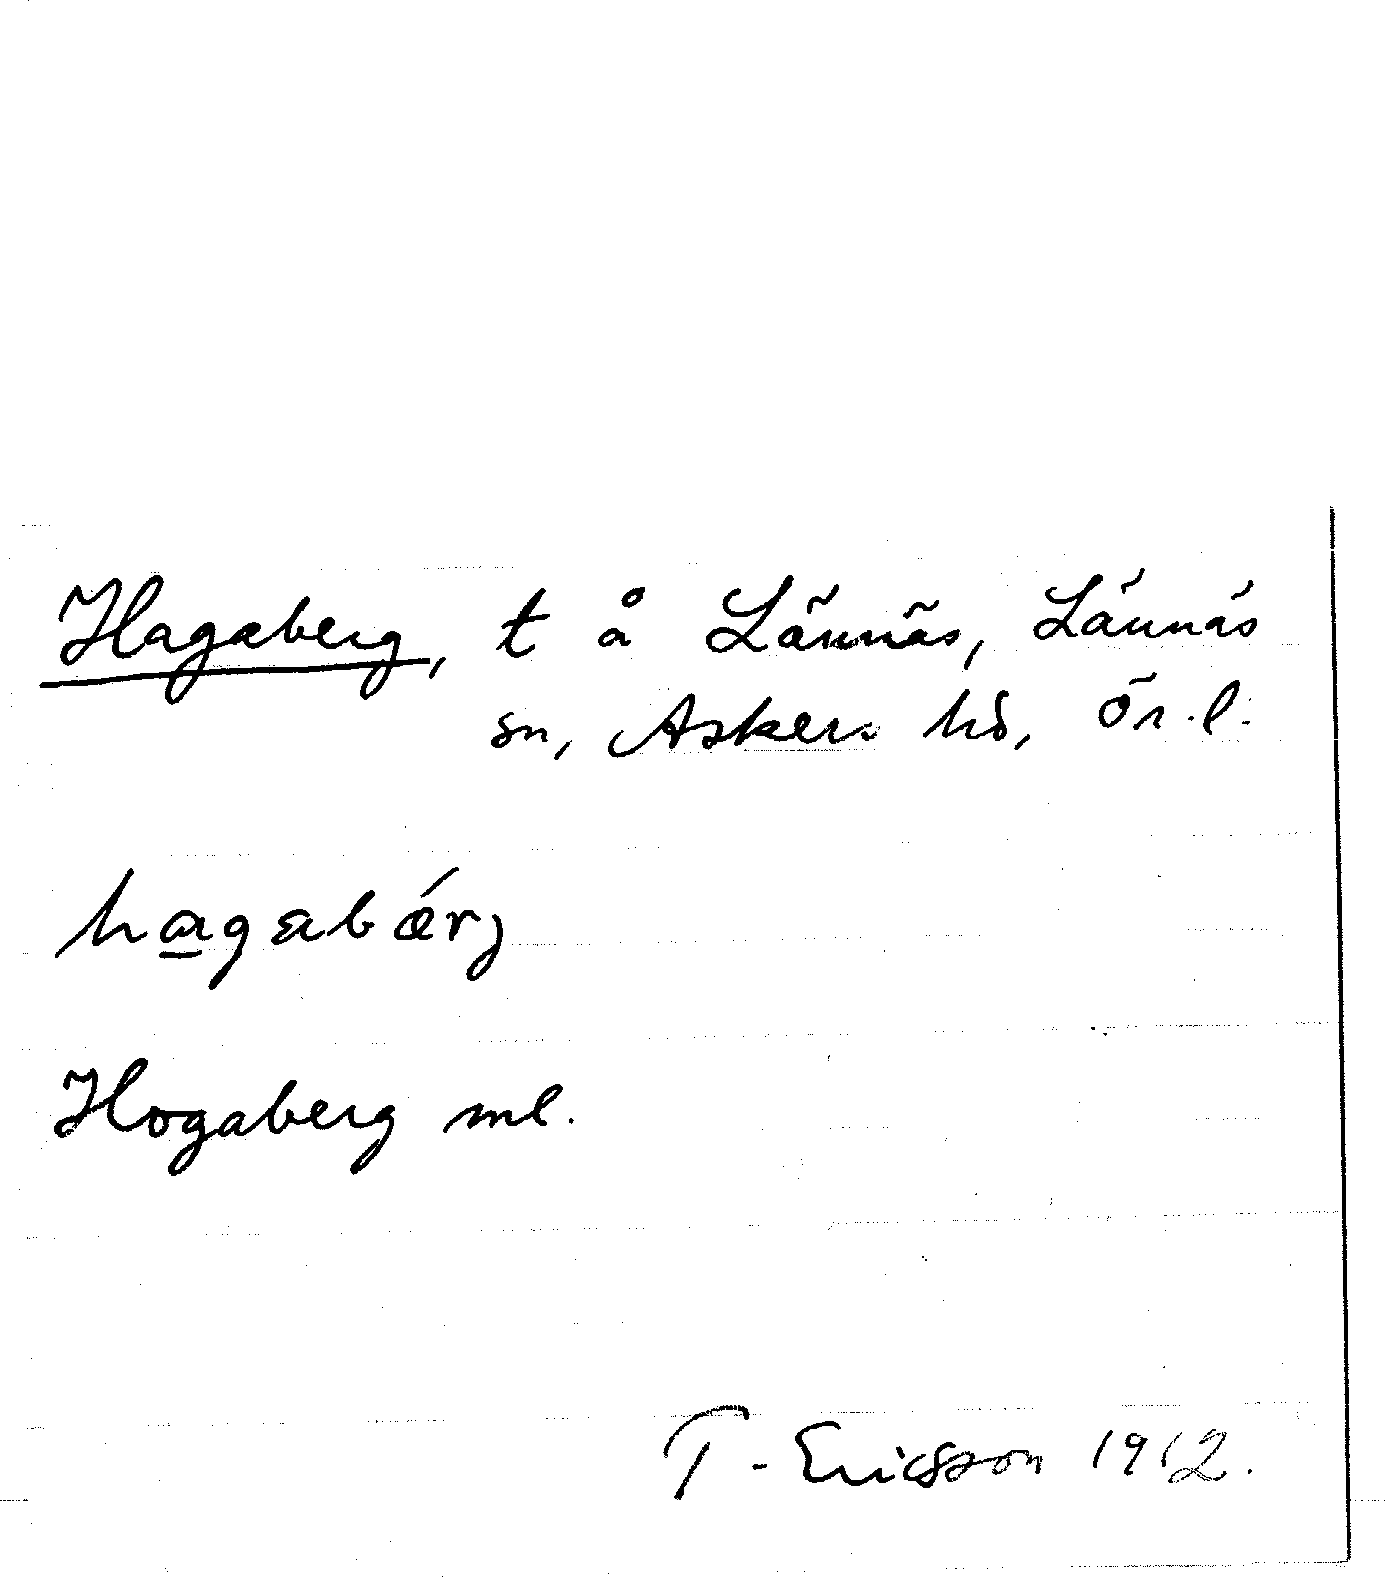 Hagaberg, t å Lännäs, Lännäs
sn, Askers hd, Ör. l.
hagabǽrj
Hogaberg ml.
T. Ericsson 1912.